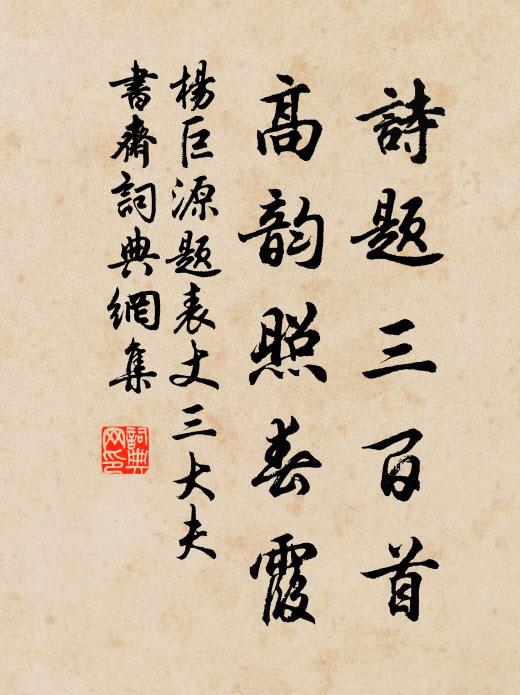 詩題三百首
高韵照春霞
楊巨源題表丈三大夫
書齋詞典網集
詞典网印